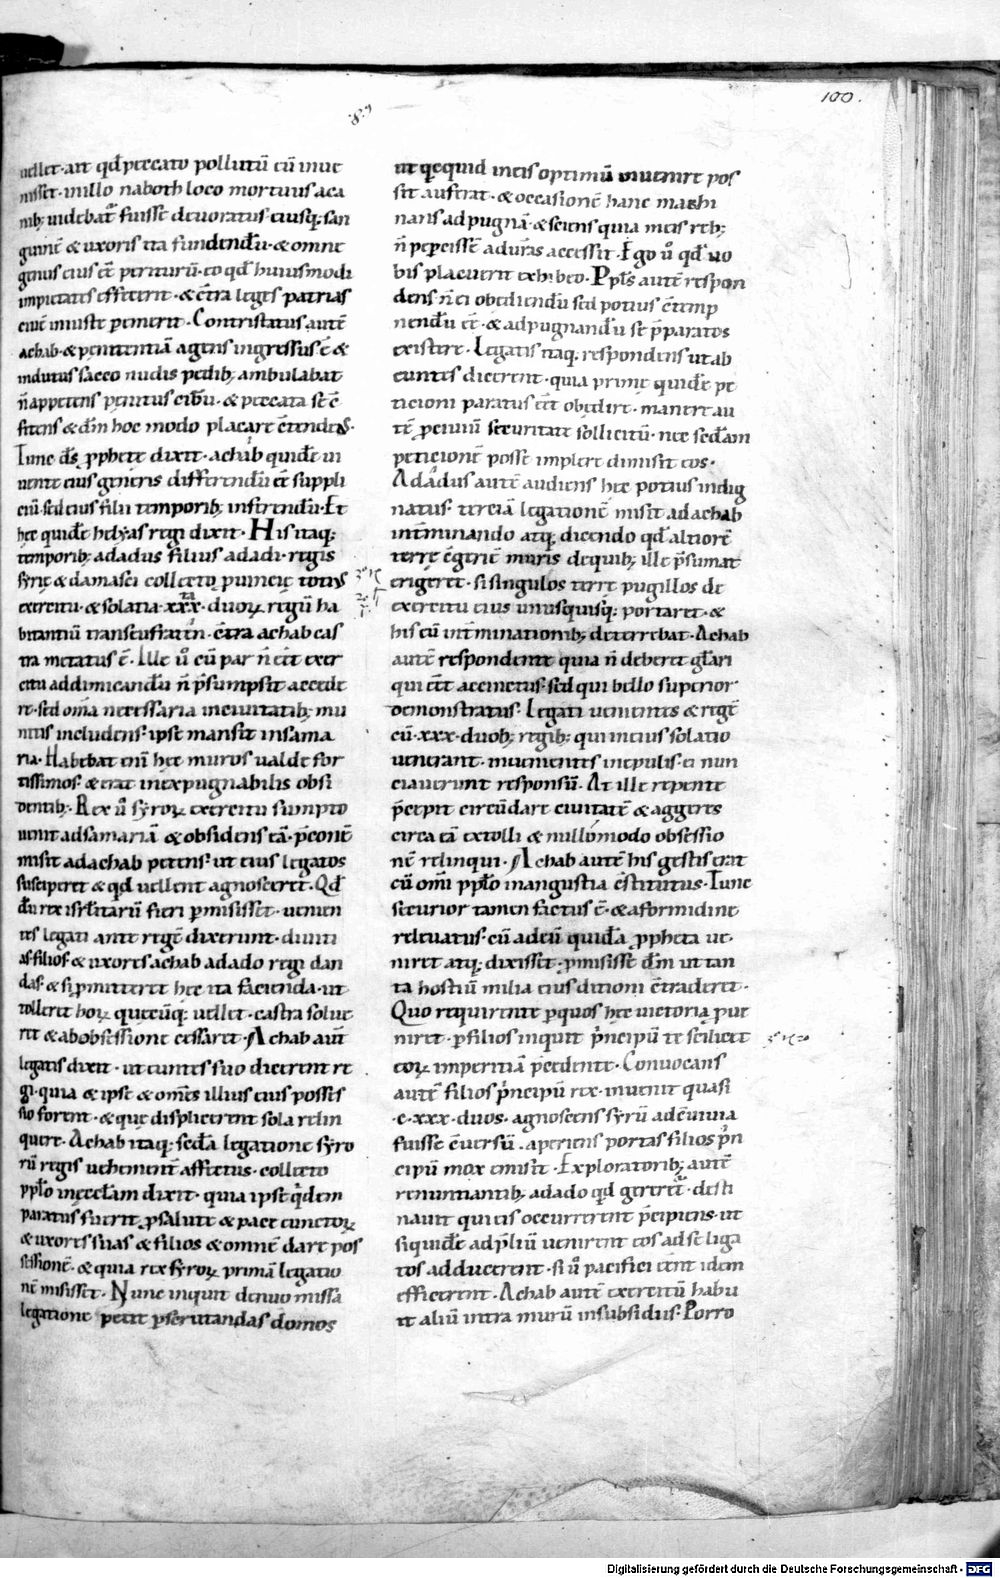 100.
uellet· ait qđ peccato pollutū cū inue
nisset· in illo naboth loco mortuus aca
nib; uidebat fuisse deuoratus eiusq; san
guinē & uxoris ita fundendū· & omne
genus eius eē periturū· eo qđ huiusmodi
impietates effecerit· & cētra leges patrias
ciuē iniuste pemerit· Contristatus autē
achab· & penitentiā agens ingressus ē &
indutus sacco nudis pedib; ambulabat
n̄ appetens penitus cibū· & peccata se cē
fitens & dm̄ hoc modo placare cētendens·
Tunc ds̄ pphete dixit· achab quidē ui
uente eius generis differendū eē suppli
ciū· sed eius filii temporib; inferendū· Et
hec quidē helyas regi dixit· His itaq;
temporib; adadus filius adadi· regis
syrię & damasci collecto puincię totius
exercitu· & solatia· xxx· duoꝝ regū ha
bitantiū trans eufraten· cētra achab cas
tra metatus ē· Ille ů cū par n̄ eēt exer
citu ad dimicandū n̄ psumpsit accede
re· sed om̄a necessaria in ciuitatib; mu
nitis includens· ipse mansit in sama
ria· Habebat eni hec muros ualde for
tissimos· & erat inexpugnabilis obsi
dentib;· Rex ů syroꝝ exercitu sumpto
uenit ad samariā & obsidens eā· pconē
misit ad achab petens· ut eius legatos
susciperet & qđ uellent agnosceret· Qđ
dū rex isrlitarū fieri pmisisset· uenien
tes legati ante regē dixerunt· diuiti
as· filios· & uxores achab adado regi dan
das· & si pmitteret hec ita facienda· ut
tolleret hoꝝ quęcūq; uellet· castra solue
ret & ab obsessione cessaret· Achab aut̄
legatis dixit· ut euntes suo dicerent re
gi· quia & ipse & om̄es illius eius posses
sio forent· & que displicerent sola relin
queret· Achab itaq; scđa legatione syro
rū regis uehementē affectus· collecto
pplo in ęcclam dixit· quia ipse qdem
paratus fuerit p salute & pace cunctoꝝ
& uxores suas & filios & omnē dare pos
sessionē· & quia rex syroꝝ primā legatio
nē misisset· Nunc inquit denuo missa
legatione petit pscrutandas domos
ut quicquid in eis optimū inuenire pos
sit auferat· & occasionē hanc machi
nans ad pugnā· & sciens quia meis reb;
n̄ pepcissē ad uras accessit· Ego ů qđ uo
bis placuerit exhibeo· Ppls autē respon
dens n̄ ei obediendū sed potius cētemp
nendū eē· & ad pugnandū se pparatos
existere· Legatis itaq. respondens ut ab
euntes dicerent· quia prime quidē pe
ticioni paratus eēt obedire· manere au
tē pciuiū securitate sollicitū· nec scdam
peticionē posse implere dimisit eos·
Adadus autē audiens hec potius indig
natus· terciā legationē misit ad achab
int̄minando atq; dicendo qđ altiorē
terrę cēgeriē muris de quib; ille psumat
erigeret· si singulos terrę pugillos de
exercitu eius unusquisq; portaret· &
his eū int̄minationib; deterrebat· Achab
autē respondente quia n̄ deberet glari
qui eēt accinctus· sed qui bello superior
demonstratus· Legati uenientes & regē
cū· xxx· duob; regib; qui in eius solatio
uenerant· inuenientes in epulis· ei nun
ciauerunt responsū· At ille repente
pcepit circūdare ciuitatē & aggeres
circa eā extolli & nullomodo obsessio
nē relinqui· Achab autē his gestis erat
cū omi pplo in angustia cēstitutus· Tunc
securior tamen factus ē· & a formidine
releuatus· cū ad eū quidā ppheta ue
niret atq; dixisset· pmisisse dm̄ ut tan
ta hostiū milia eius ditioni cētraderet·
Quo requirente p quos hec uictoria pue
niret· p filios inquit pncipū te scilicet
eoꝝ imperitiā pcedente· Conuocans
autē filios pncipū rex· inuenit quasi
·c·xxx· duos· agnoscens syrū ad cēuiuia
fuisse cēuersū· aperiens portas filios pn
cipū mox emisit· Exploratorib; autē
renuntiantib; adado qđ gereret· desti
nauit qui eis occurrerent pcipiens· ut
siquidē ad pliū uenirent eos ad se liga
tos adducerent· si ů pacifici eent idem
efficerent· Achab autē exercitū habu
it aliū intra murū in subsidus· Porro
Digitalisierung gefördert durch die Deutsche Forschungsgemeinschaft - DFG